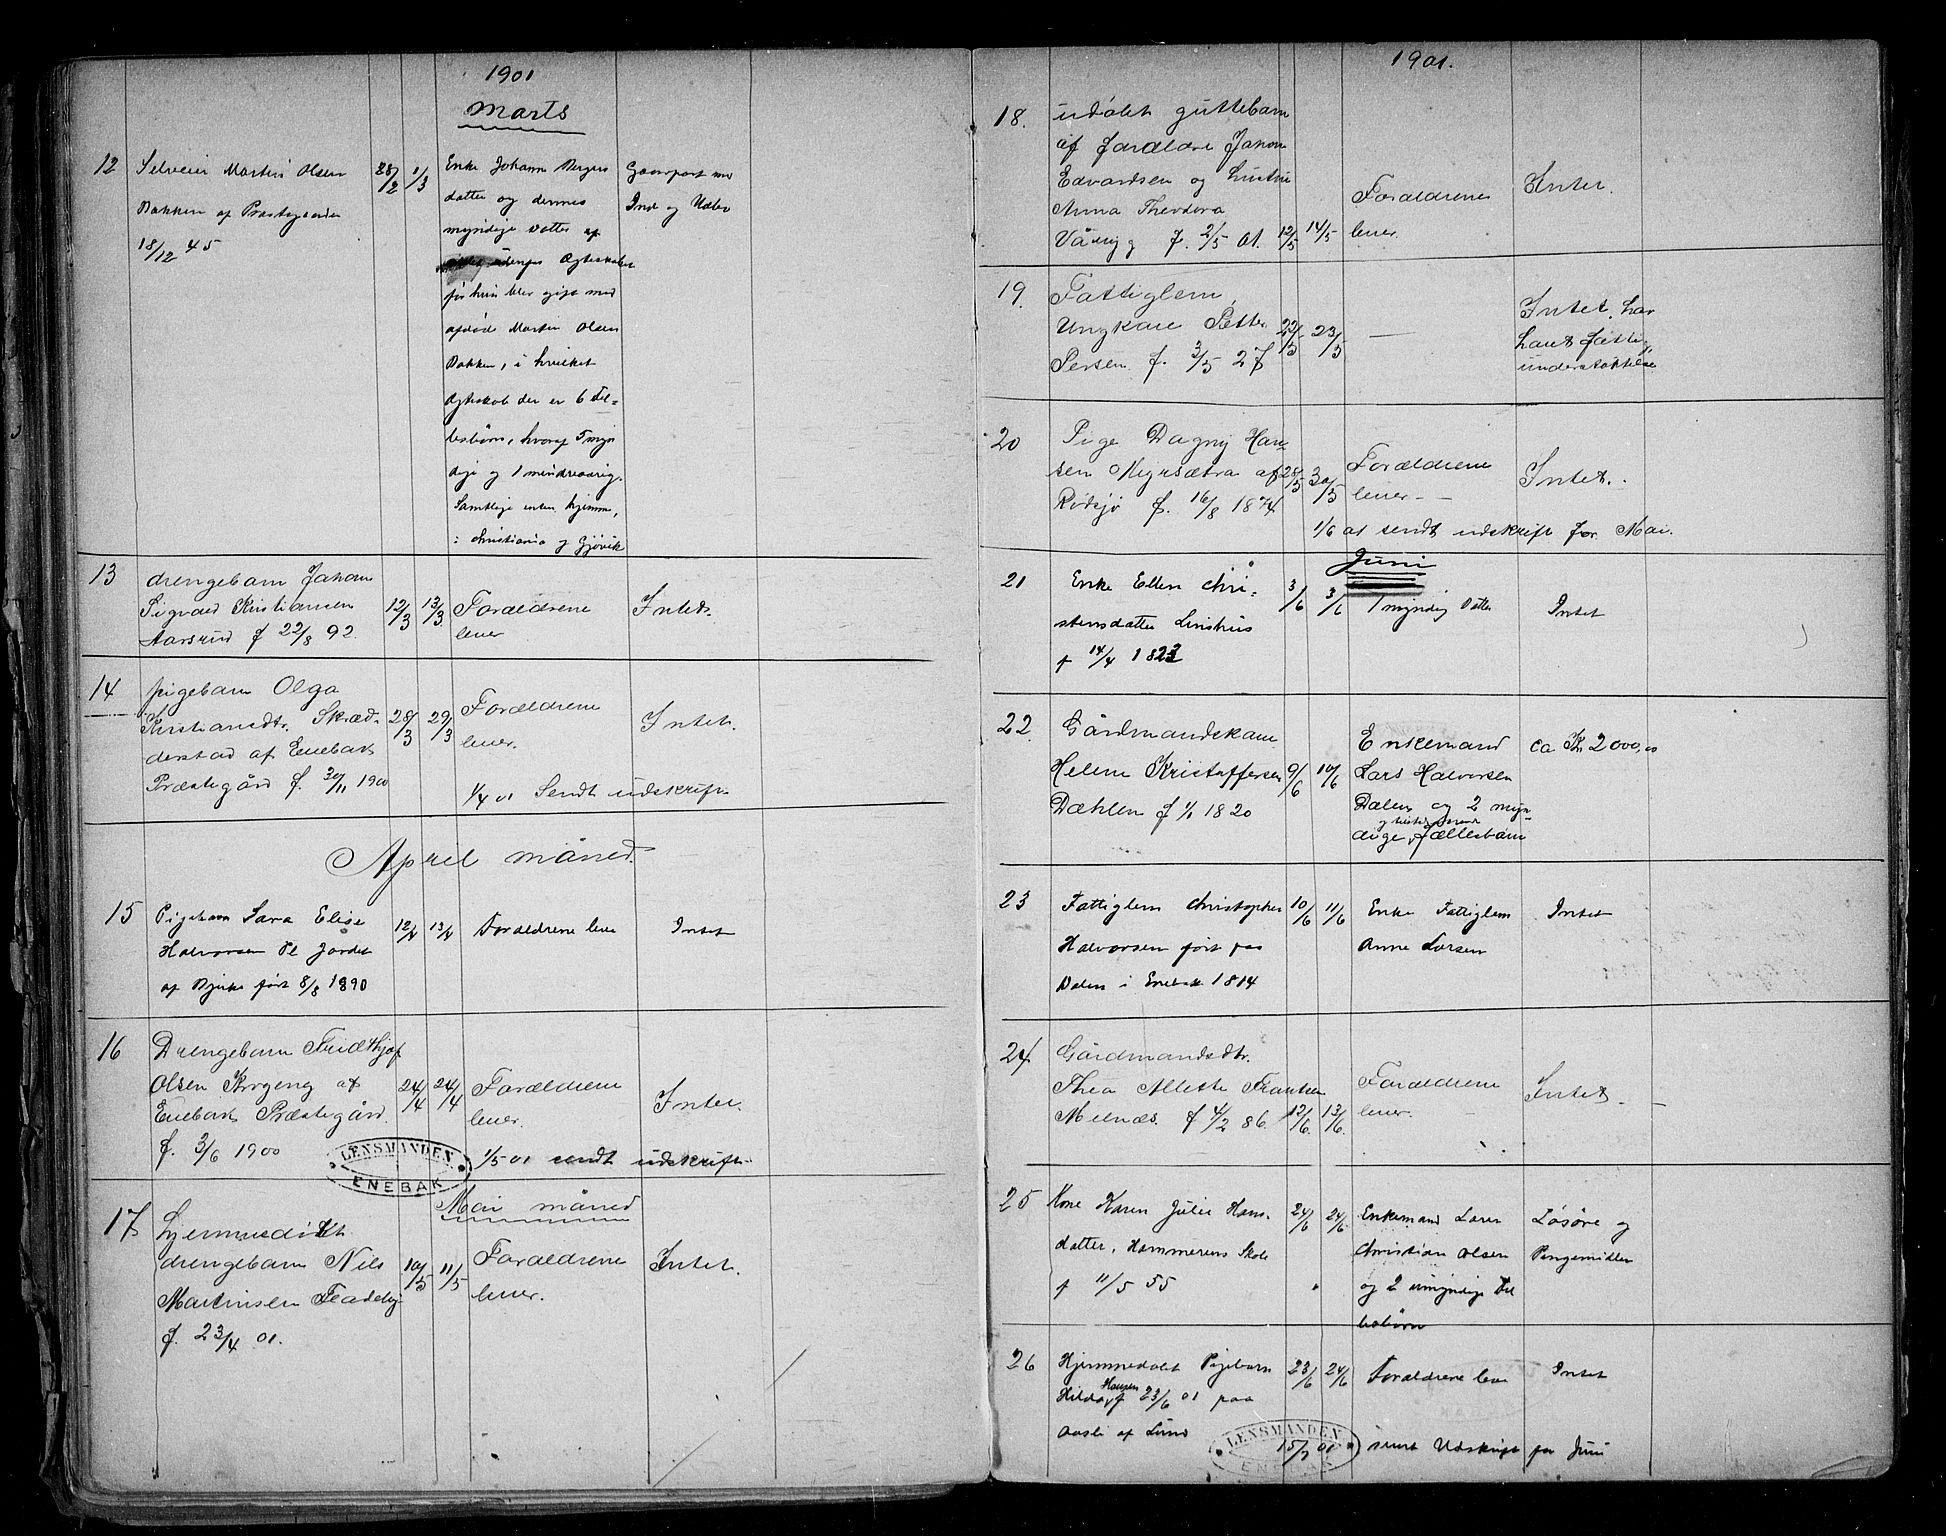 1901
Marts
12 Selveier Martin Olsen 28/2 1/3 Enke Johanne Bergers Gaardpart med
Bakken af Præstegaarden datter og dennes Ind og Udbo
18/12 45 myndige Datter af
udenfor Ægteskabet
før hun blev gift med
afdøde Martin Olsen
Bakken, i hvilket
Ægteskab der er 6 Fæl-
lesbørn, hvoraf 5 myn
dige og 1 mindreaarig.
Samtlige enten hjemme,
i Christiania og Gjøvik
13 drengebarn Johan
Sigvald Kristiansen 12/3 13/3 Forældrene Intet.
Aarsrud f 22/8 92. lever
14 pigebarn Olga
Kristiansdtr. Skræd- 28/3 29/3 Forældrene Intet.
derstad af Enebak lever.
Præstegård f. 30/11 1900
1/4 01 Sendt udskrift
April måned.
15 Pigebarn Sara Elise 12/4 13/4 Forældrene lever Intet
Halvorsen Pl Jordet
af Bjerke født 8/8 1890
16 Drengebarn Fridthjof
Olsen Krogeng af 24/4 24/4 Forældrene Intet.
Enebak Præstegård. lever.
f. 3/6 1900
1/5 01 sendt udskrift
LENSMANDEN
ENEBAK
Mai måned
17. hjemmedøbt
drengebarn Nils 10/5 11/5 Forældrene Intet.
Martinsen Fladeby lever.
f. 23/4 01.
1901.
18. udøbt guttebarn
af forældre Johan
Edvardsen og hustru Intet.
Anna Theodora Forældrene
Våg f. 2/5 01. 12/5 14/5 lever.
19. Fattiglem, Intet, har
Ungkarl Petter 22/5 23/5 — havt fattig
Persen f. 3/5 27 understøttelse
20 Pige Dagny Han-
sen Myrsætra af 28/5 30/5 Forældrene Intet.
Rødsjø f. 16/8 1874 lever
1/6 01 sendt udskrift for Mai.
Juni
21 Enke Ellen Chri- 3/6 3/6 1 myndig Datter Intet
stensdatter Linshus
f 14/4 1823
22. Gårdmandskone Enkemand ca Kr 2000,00
Helene Kristoffersen 9/6 10/6 Lars Halvorsen
Dæhlen f 1/1 1820 Dælen og 2 myn-
dige fællesbarn
23 Fattiglem Christopher 10/6 11/6 Enke Fattiglem Intet
Halvorsen født paa Anne Larsen
Dalen i Enebak 1814
24 Gårdmandsdtr.
Thea Alette Frantsen Forældrene Intet
Melnæs. f 4/2 86. 12/6. 13/6. lever.
25 Kone Karen Julie Hans- 24/6 24/6 Enkemand Lærer Løsøre og
datter, Hammerens Skole Christian Olsen Pengemidler
f 11/5 55 og 2 umyndige Fæl
lesbørn
26 Hjemmedøbt Pigebarn 23/6 24/6 Forældrene lever Intet
Hilda Hansen f 23/6 01 paa
Aasli af Lund
LENSMANDEN
ENEBAK
15/7 01 sendt Udskrift for Juni